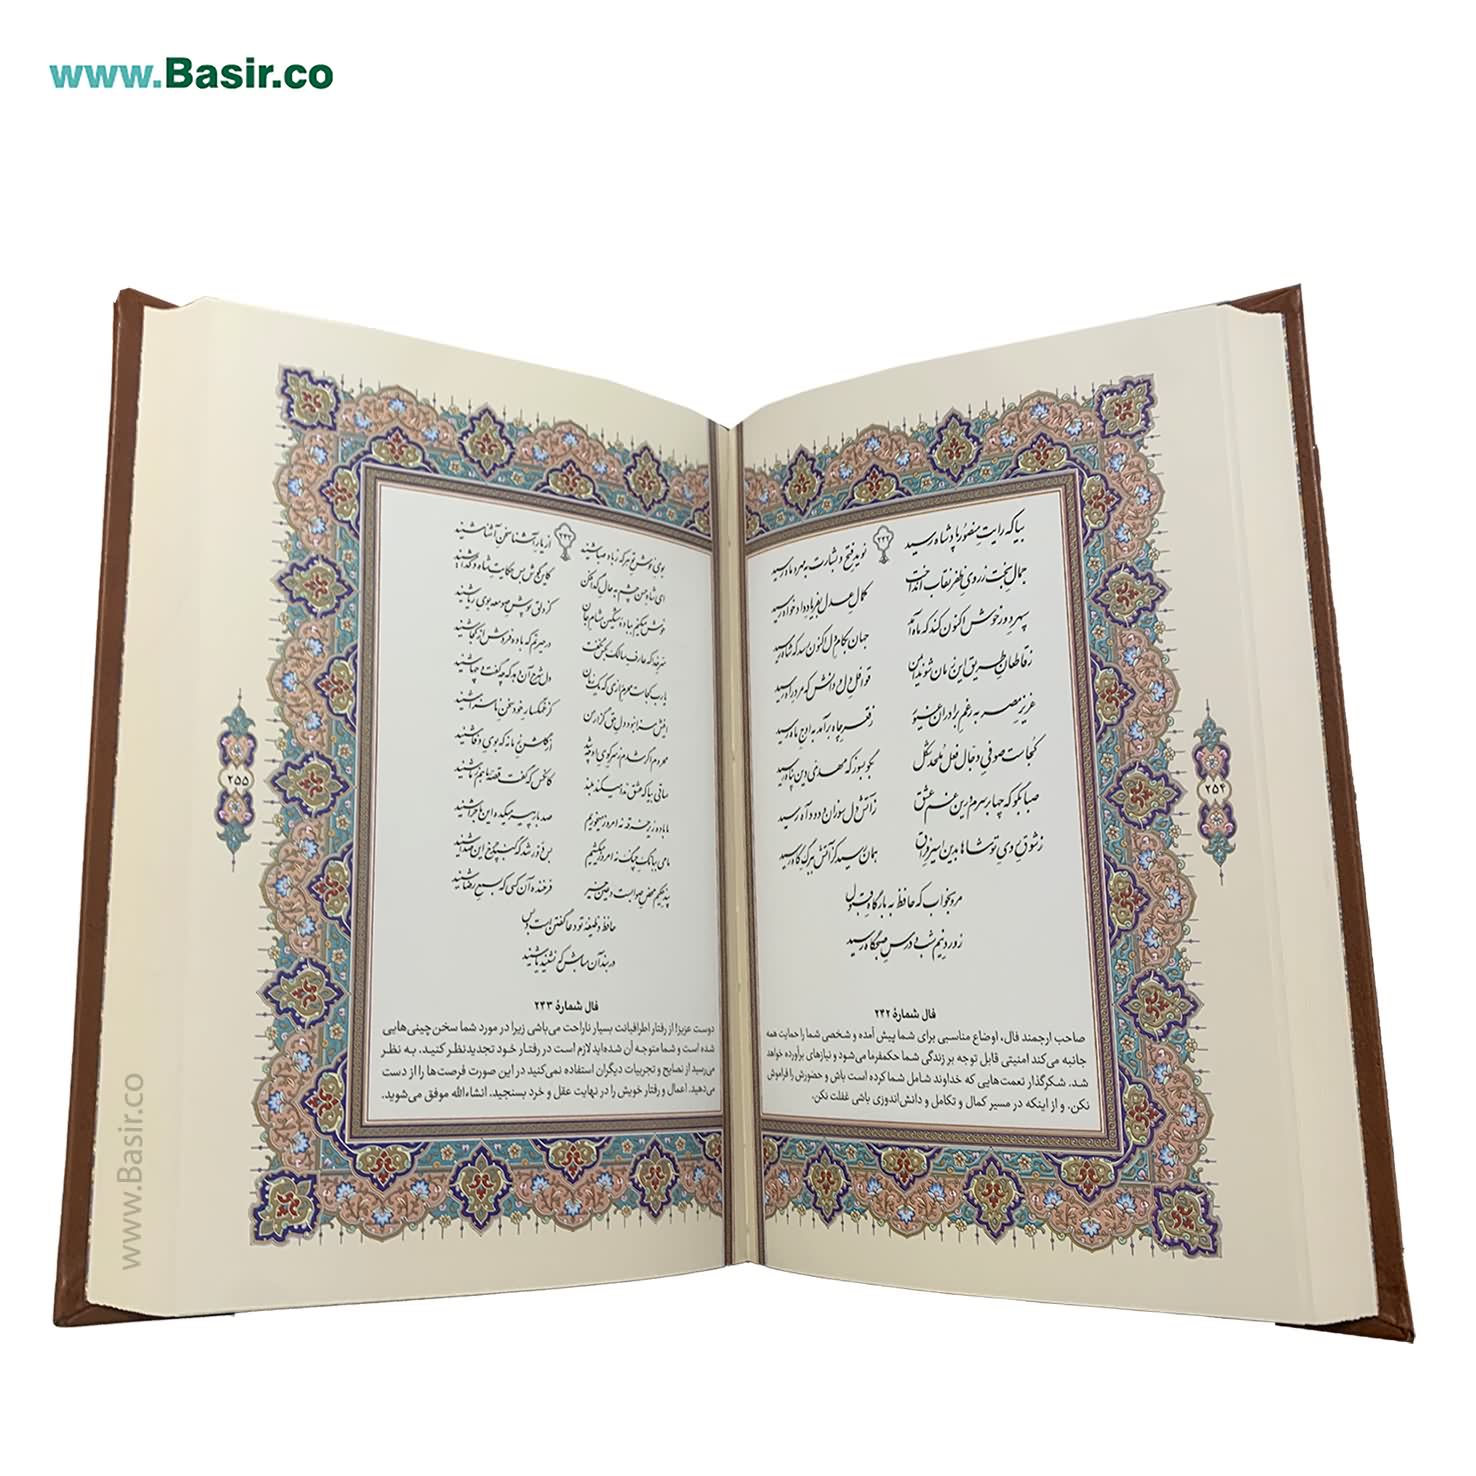 www.Basir.co
۲۴۲
بیا که رایت منصور پادشاه رسید نوید فتح و بشارت به مهر و ماه رسید
جمال بخت ز روی ظفر نقاب انداخت کمال عدل به فریاد دادخواه رسید
سپهر دور خوش اکنون کند که ماه آمد جهان به کام دل اکنون رسد که شاه رسید
ز قاطعان طریق این زمان شوند ایمن قوافل دل و دانش که مرد راه رسید
عزیز مصر به رغم برادران غیور ز قعر چاه برآمد به اوج ماه رسید
کجاست صوفی دجال فعل ملحد شکل بگو بسوز که مهدی دین پناه رسید
صبا بگو که چها بر سرم درین غم عشق ز آتش دل سوزان و دود آه رسید
ز شوق روی تو شاها بدین اسیر فراق همان رسید کز آتش به برگ کاه رسید
مرو به خواب که حافظ به بارگاه قبول
ز ورد نیم شب و درس صبحگاه رسید
فال شمارهٔ ۲۴۲
صاحب ارجمند فال، اوضاع مناسبی برای شما پیش آمده و شخصی شما را حمایت همه
جانبه می‌کند امنیتی قابل توجه بر زندگی شما حکمفرما می‌شود و نیازهای برآورده خواهد
شد. شکرگذار نعمت‌هایی که خداوند شامل شما کرده است باش و حضورش را فراموش
نکن. و از اینکه در مسیر کمال و تکامل و دانش‌اندوزی باشی غفلت نکن.
۲۵۴
۲۴۳
بوی خوش تو هر که ز باد صبا شنید از یار آشنا سخن آشنا شنید
ای شاه حسن چشم به حال گدا فکن کاین گوش بس حکایت شاه و گدا شنید
خوش میکنم به باده مشکین مشام جان کز دلق پوش صومعه بوی ریا شنید
سر خدا که عارف سالک به کس نگفت در حیرتم که باده فروش از کجا شنید
یا رب کجاست محرم رازی که یک زمان دل شرح آن دهد که چه گفت و چها شنید
اینش سزا نبود دل حق گزار من کز غمگسار خود سخن ناسزا شنید
محروم اگر شدم ز سر کوی او چه شد از گلشن زمانه که بوی وفا شنید
ساقی بیا که عشق ندا میکند بلند کانکس که گفت قصه ما هم ز ما شنید
ما باده زیر خرقه نه امروز میخوریم صد بار پیر میکده این ماجرا شنید
ما می به بانگ چنگ نه امروز میکشیم بس دور شد که گنبد چرخ این صدا شنید
پند حکیم محض صوابست و عین خیر فرخنده آن کسی که به سمع رضا شنید
حافظ وظیفه تو دعا گفتن است و بس
در بند آن مباش که نشنید یا شنید
فال شمارهٔ ۲۴۳
دوست عزیز! از رفتار اطرافیانت بسیار ناراحت می‌باشی زیرا در مورد شما سخن چینی‌هایی
شده است و شما متوجه آن شده‌اید لازم است در رفتار خود تجدیدنظر کنید. به نظر
می‌رسید از نصایح و تجربیات دیگران استفاده نمی‌کنید در این صورت فرصت‌ها را از دست
می‌دهید. اعمال و رفتار خویش را در نهایت عقل و خرد بسنجید، انشاءالله موفق می‌شوید.
۲۵۵
www.Basir.co